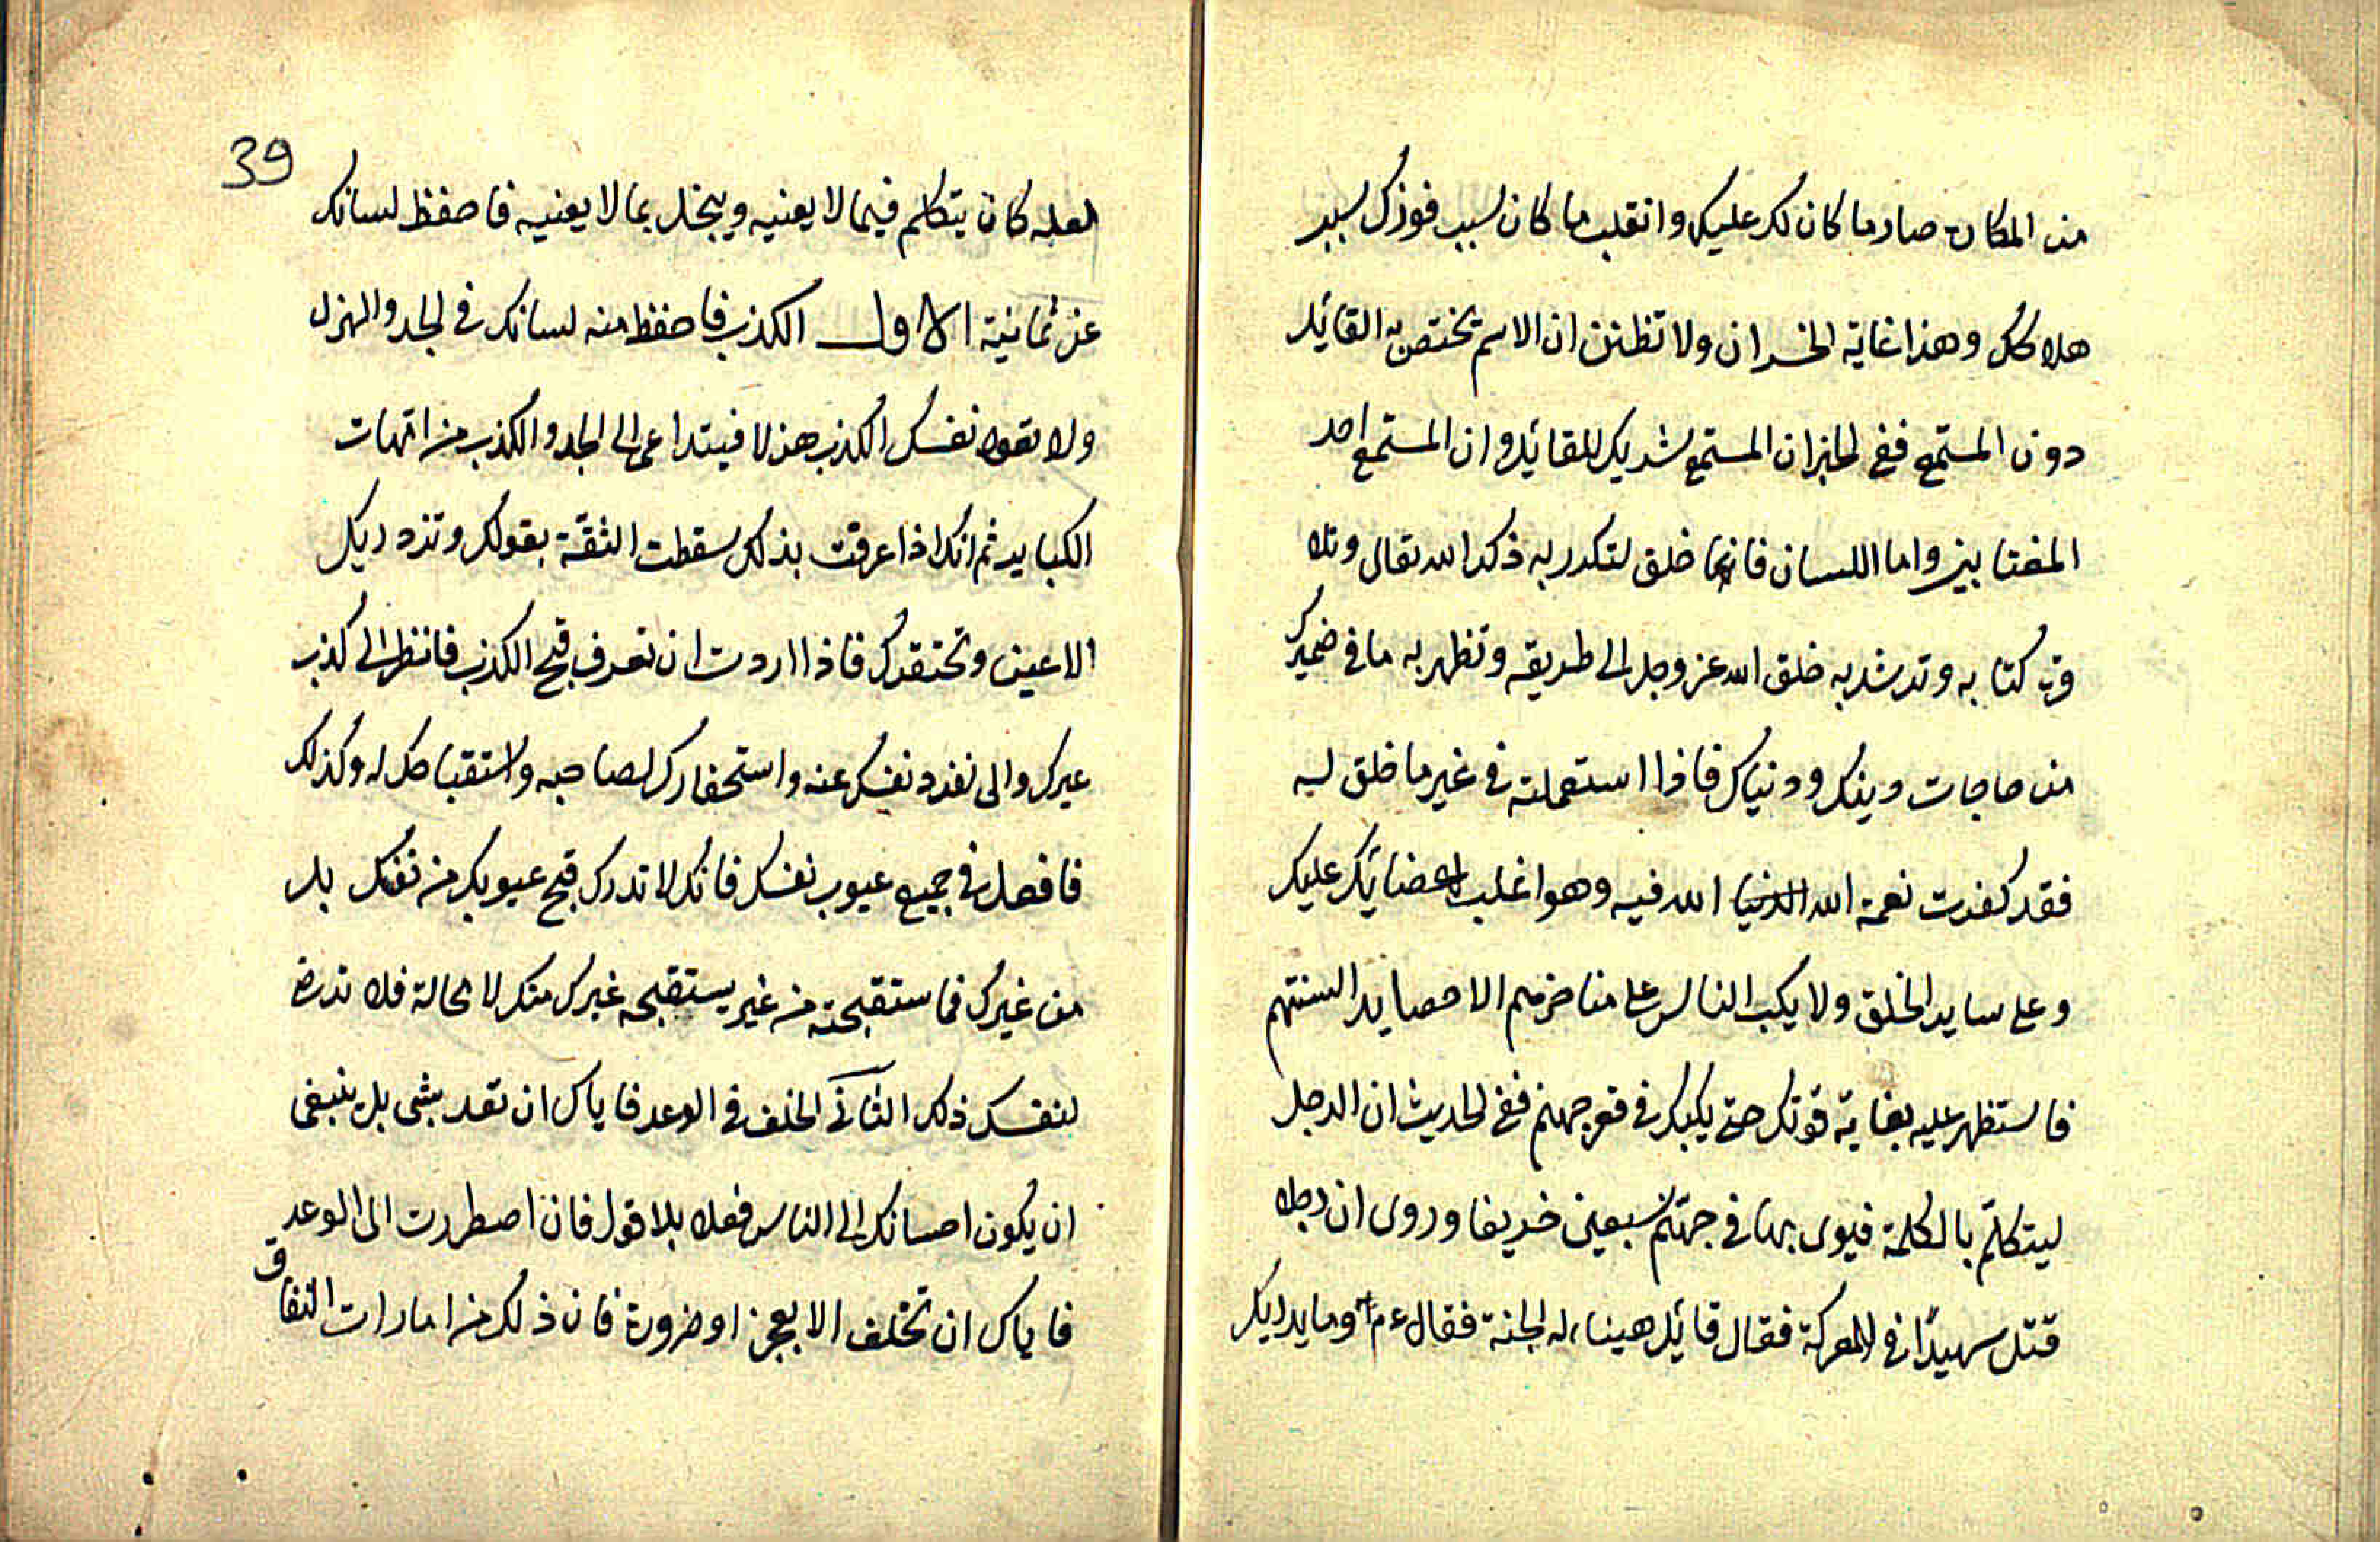 من المكاره صار ما كان لك عليك وانقلب ما كان سبب فوزك سبب
هلاكك وهذا غاية الخسران ولا تظنن ان الاثم يختص به القائل
دون المستمع ففي الخبر ان المستمع شريك للقائل وان المستمع احد
المغتابين واما اللسان فانما خلق لتكرر به ذكر الله تعالى وتلاوة
كتابه وترشد به خلق الله عز وجل الى طريقه وتظهر به ما في ضميرك
من حاجات دينك ودنياك فاذا استعملته في غير ما خلق له
فقد كفرت نعمة الله الله فيه وهو اغلب اعضائك عليك
وعلى ساير الخلق ولا يكب الناس على مناخرهم الا حصايد السنتهم
فاستظهر عليه بغاية قوتك حتى يكبك في قعر جهنم ففي الحديث ان الرجل
ليتكلم بالكلمة فيهوى بها في جهنم سبعين خريفا وروى ان رجلا
قتل شهيدا في المعركة فقال قائل هنيئا له الجنة فقال عم وما يدريك
39
لعله كان يتكلم فيما لا يعنيه ويبخل بما لا يعنيه فاحفظ لسانك
عن ثمانية الاول الكذب فاحفظ منه لسانك في الجد والهزل
ولا نفسك الكذب هزلا فيتداعى الى الجد والكذب من امهات
الكباير ثم انك اذا عرفت بذلك سقطت الثقة بقولك وتزدريك
الاعين وتحتقرك فاذا اردت ان تعرف قبح الكذب فانظر الى كذب
غيرك والى نفرة نفسك عنه واستحقارك لصاحبه واستقباحك له وكذلك
فافعل في جميع عيوب نفسك فانك لا تدرك قبح عيوبك من نفسك بل
من غيرك فما ستقبحته من غير يستقبحه غيرك منك لا محالة فلا ترض
لنفسك ذلك الثاني الخلف في الوعد فاياك ان تعد بشى بل ينبغى
ان يكون احسانك الى الناس فعلا بلا قول فان اضطررت الى الوعد
فاياك ان تخلف الا بعجز او ضرورة فان ذلك من امارات النفاق